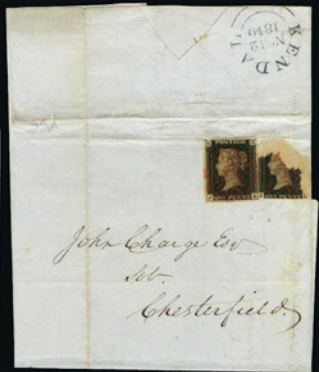 KENDAL
1840
POSTAGE
ONE PENNY
PENNY
John Charge Esq
Sol.
Chesterfield.